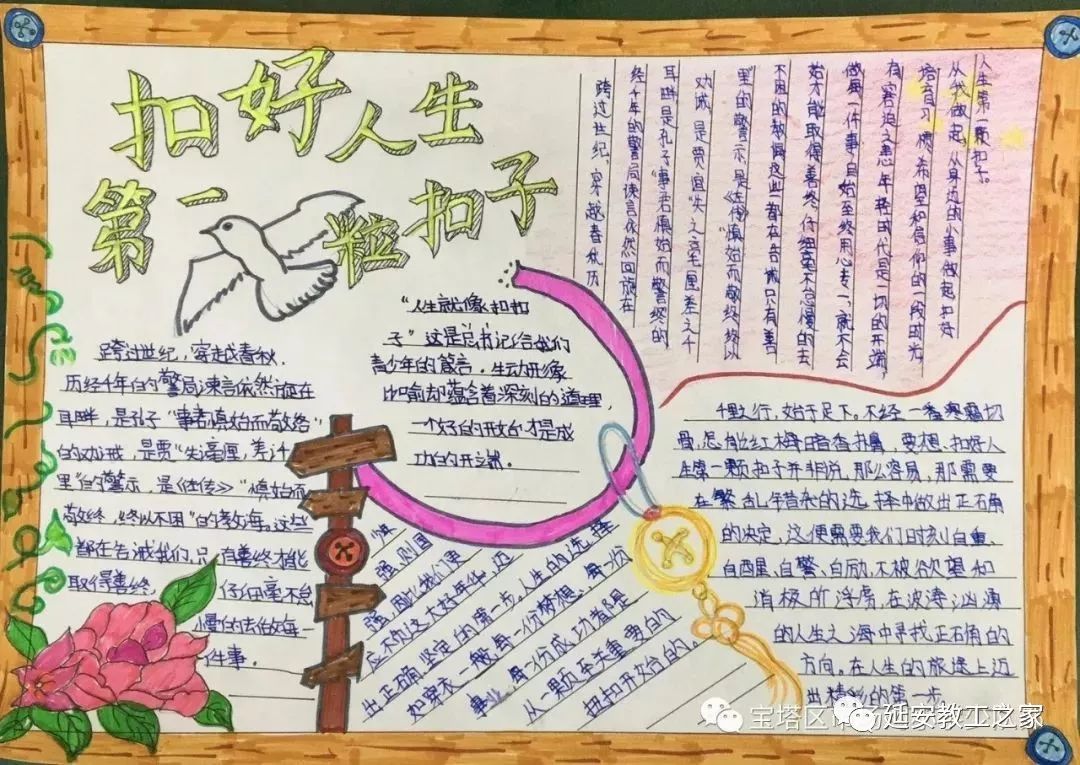 扣好人生
第一粒扣子
跨过世纪，穿越春秋，
历经千年的警局谏言依然旋在
耳畔，是孔子“事君慎始而敬终”
的劝戒，是贾“失毫厘，差千
里”的警示，是《左传》“慎始而
敬终，终以不困”的教海，这些
都在告诫我们，只有善终才能
取得善终，仔细毫不怠
慢的去做每
件事。
“人生就像扣扣
子”这是总书记给我们
青少年的箴言．生动形象
比喻却蕴含着深刻的道理，
一个好的开始才是成
功的开端．
人生第一颗扣子。
从我做起，从身边的小事做起扣好
培育习惯，希望和信仰的一段时光
有容迨之惠年轻的代是一切的开端，
做每一件事，自始至终用心专一，就不会
始才能取得善终，仔细毫不怠慢的去
不困的教悔这些都在告诫只有善
里的警示，是《左传》“慎始而敬终，终以
劝诫，是贾谊“失之毫厘差之千
耳畔是孔子“事君慎始而警终的
经千年的警局谏言依然回旋在
跨过世纪，穿越春秋历
强，则国
强，因此我们更
应不负这大好年华，迈
出正确、坚定的第一步，人生的选择
如穿衣一般，每一份梦想、每一份
事业，每一份成功都是
从一颗至关重要的
纽扣开始的。
千里之行，始于足下，不经一番寒霜切
骨，怎能红梅暗香扑鼻，要想，扣好人
生第一颗扣子并非说，那么容易，那需要
在繁乱错杂的选择中做出正确
的决定，这便需要我们时刻自重、
自醒、自警、自励，不被欲望和
消极所浮虏，在波涛汹涌
的人生之海中寻找正确的
方向，在人生的旅途上迈
出精彩的第一步。
宝塔区
延安教工之家